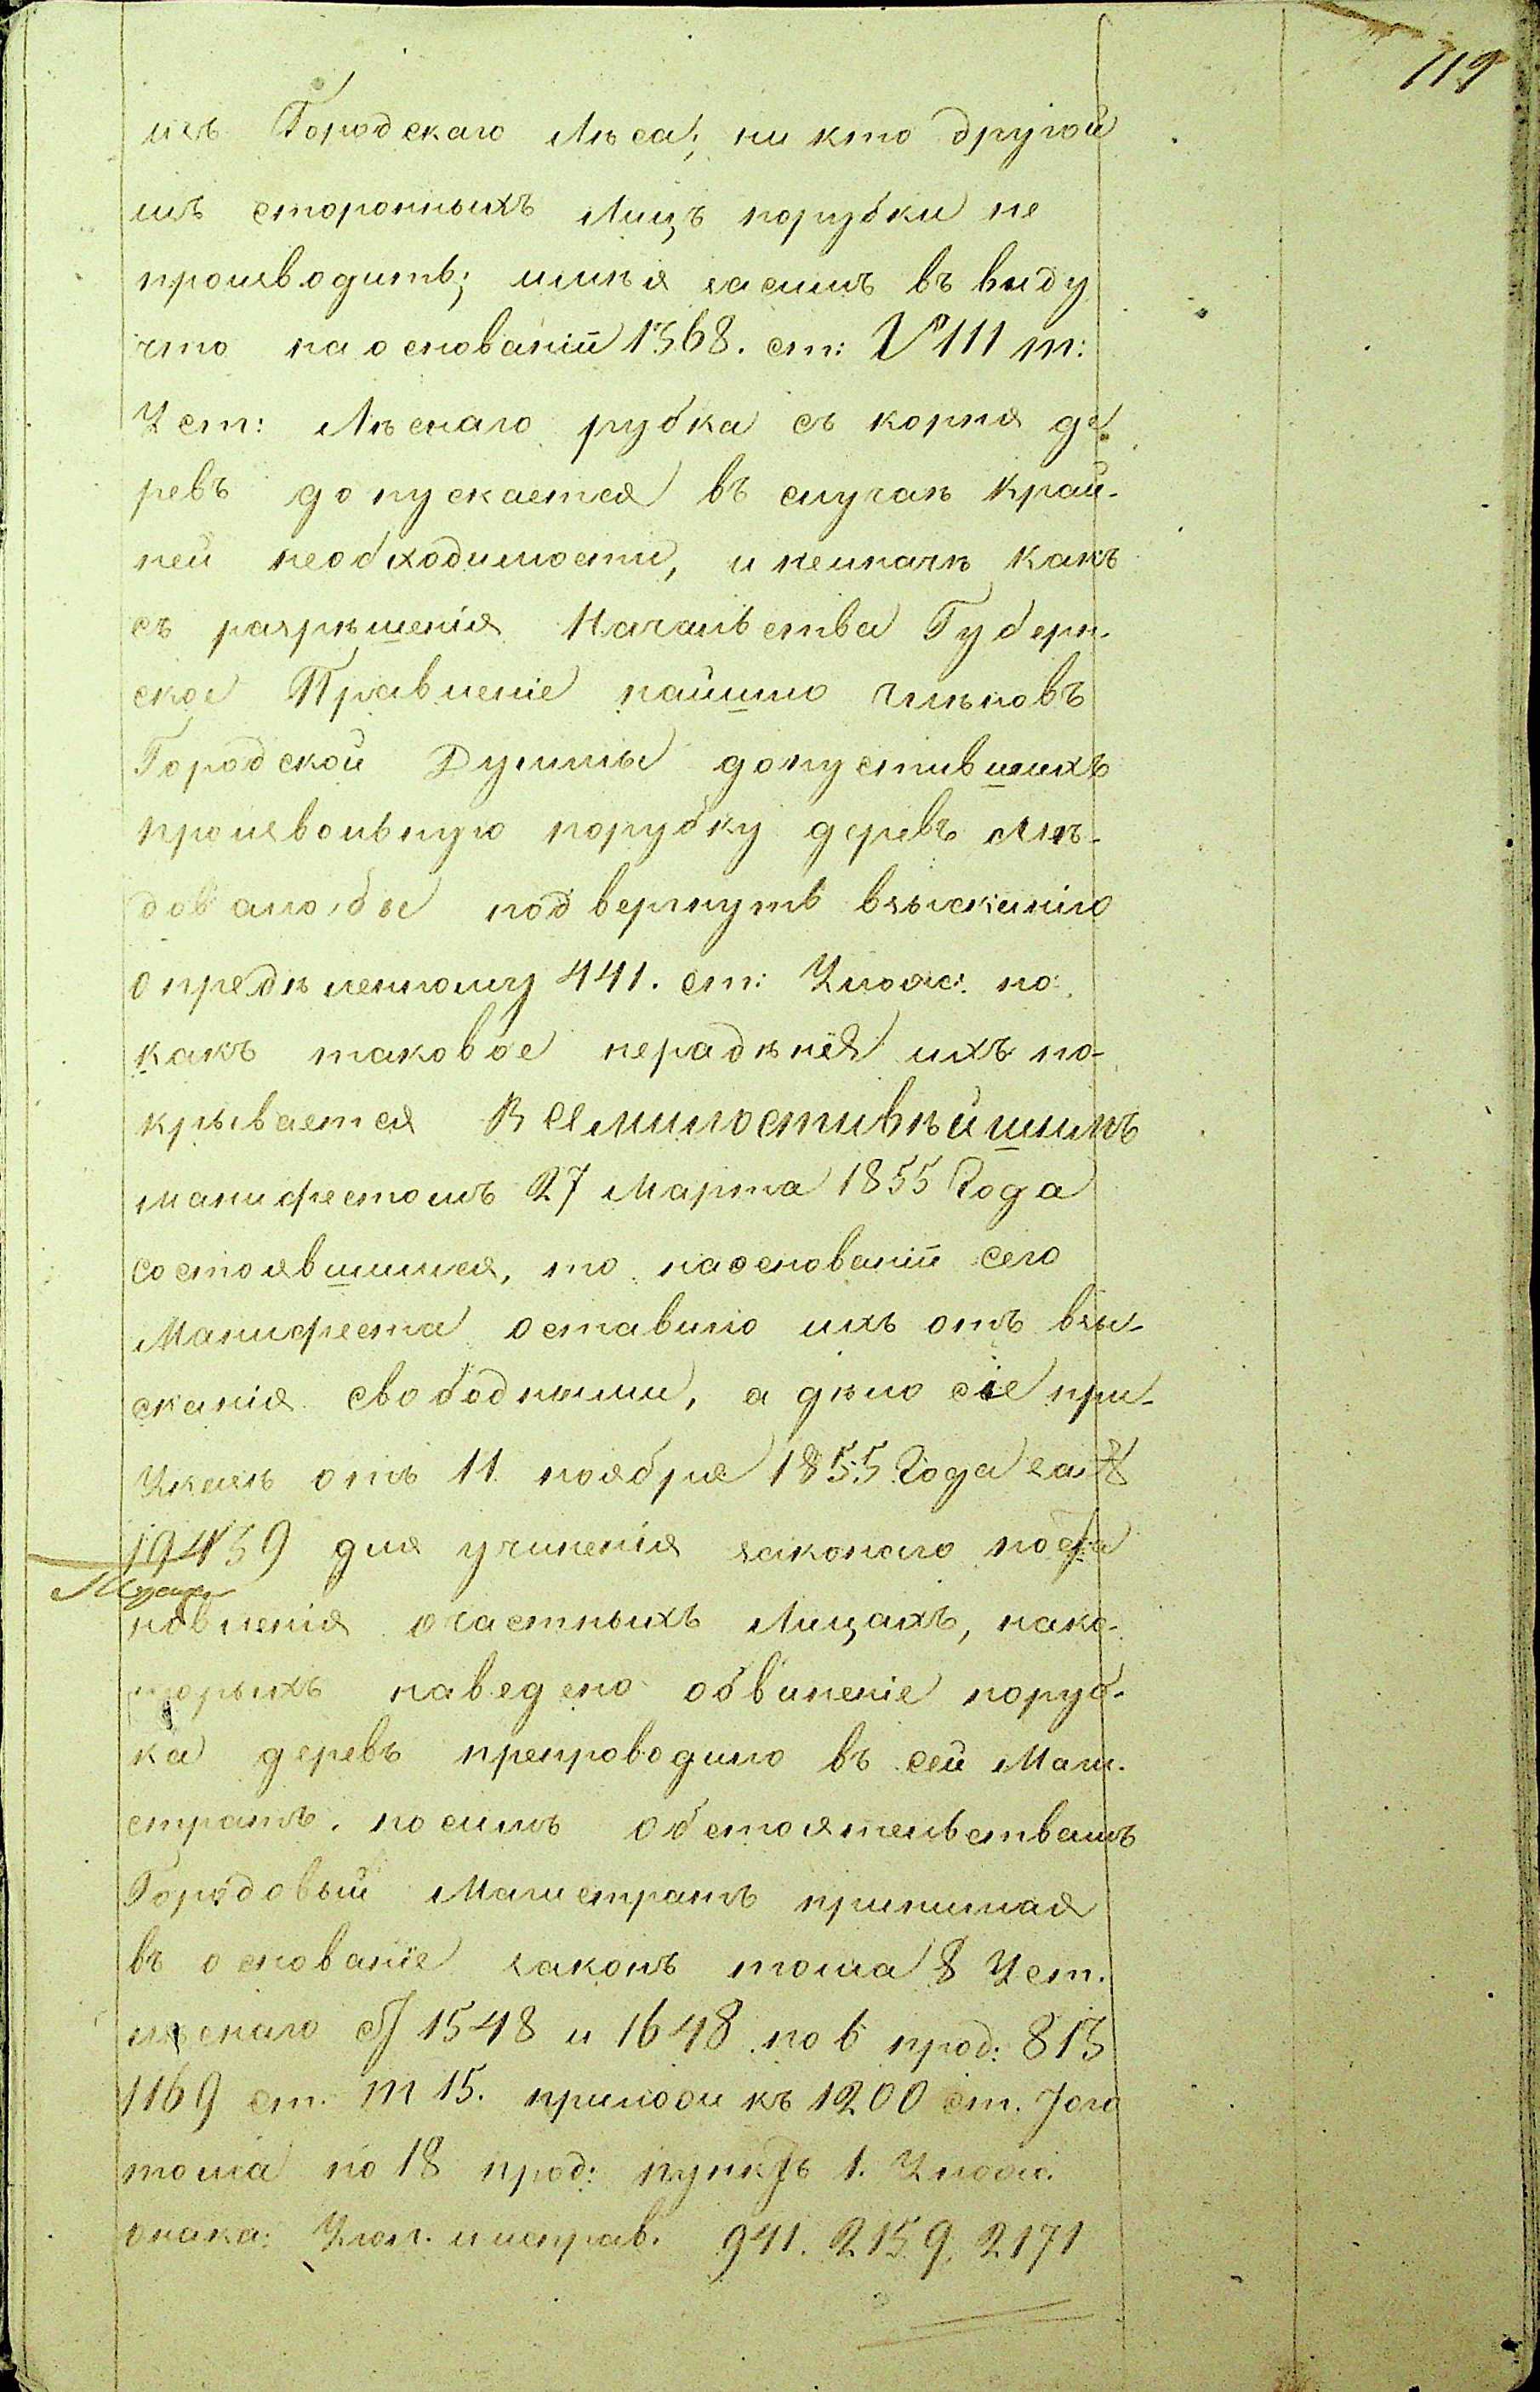 119
изъ Городскаго Лѣса; ни кто другой
изъ стороннихъ Лицъ порубки не
производитъ; имѣя засимъ въ виду
что на основаніи 1568. ст: VIII т:
Уст: Лѣснаго рубка съ корня де
ревъ допускается въ случаѣ край-
ней необходимости, и неиначѣ какъ
съ разрѣшенія Начальства Губерн-
ское Правленіе нашло членовъ
Городской Думмы допустившихъ
произвольную порубку деревъ слѣ-
довалобы подвергнуть взысканію
опредѣленному 441. ст: Улож: но
какъ таковое нерадѣнія ихъ по-
крывается Всемилостивѣйшимъ
манифестомъ 27 Марта 1855 Года
состоявшимся, то наоснованіи сего
Манифеста оставило ихъ отъ взы-
сканія свободными, а дѣло сіе при
Указѣ отъ 11 ноября 1855 Года за №
19459 для учиненія законаго поста
новленія очастныхъ Лицахъ, нако-
торыхъ наведено обвиненіе поруб-
ка деревъ препроводило въ сей Маги-
стратъ. посимъ обстоятельствамъ
Городовый Магистратъ принимая
въ основаніе законъ тома 8 Уст.
лѣснаго ст 1548 и 1648 по 6 прод: 813
1169 ст. т 15. прилож къ 1200 ст. того
тома по 18 прод: пунктъ 1. Улож.
онака: Угол. иисправ. 941. 2159. 2171